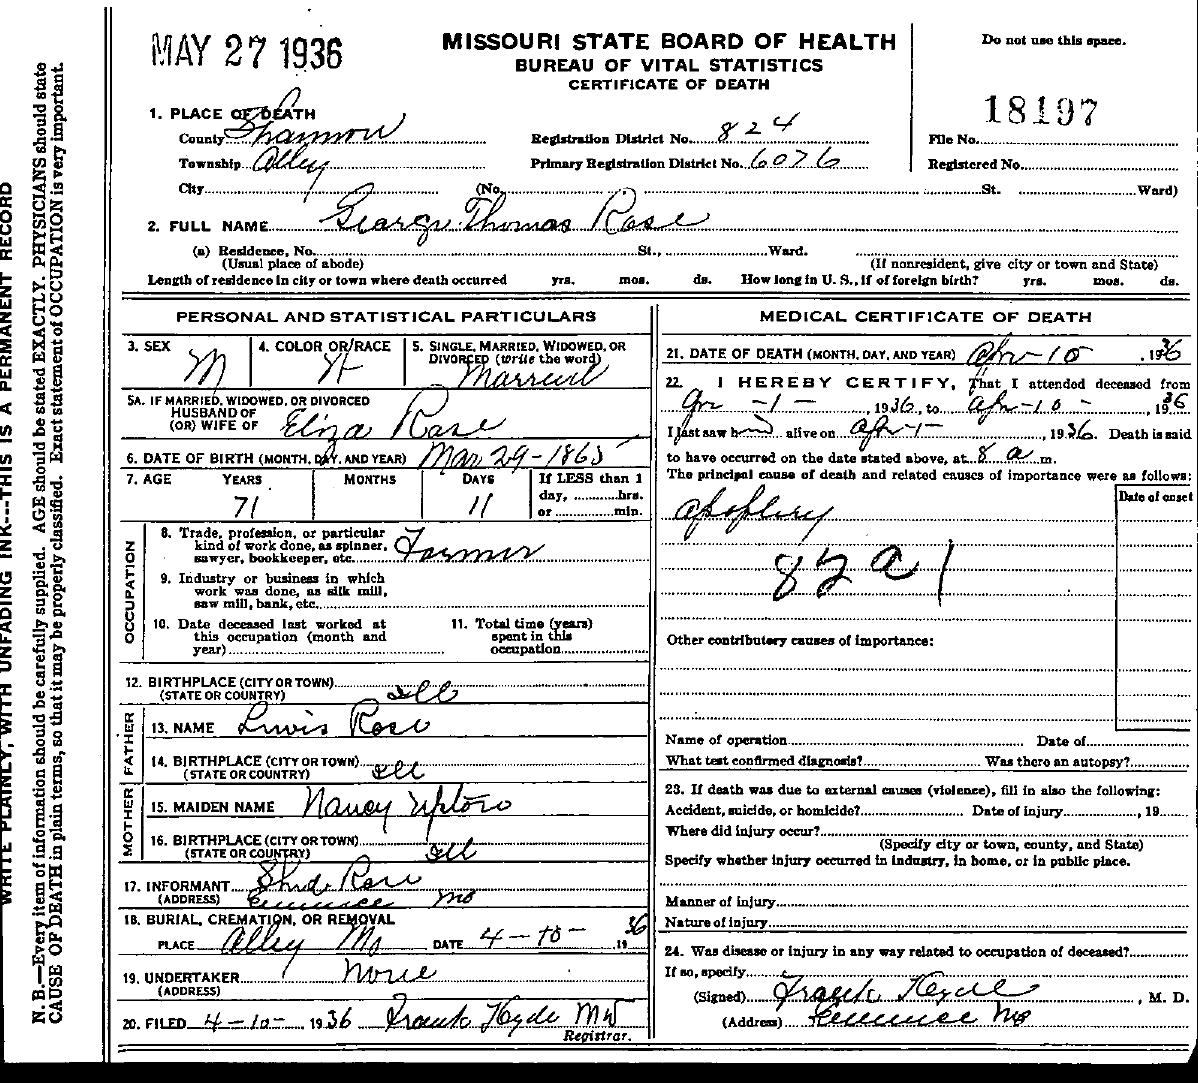 MAY 27 1936
MISSOURI STATE BOARD OF HEALTH
BUREAU OF VITAL STATISTICS
CERTIFICATE OF DEATH
Do not use this space.
18197
1. PLACE OF DEATH
County Shannon Registration District No. 824 File No.
Township Alley Primary Registration District No. 6076 Registered No.
City (No. St. Ward)
2. FULL NAME George Thomas Rose
(a) Residence, No. St., Ward.
(Usual place of abode) (If nonresident, give city or town and State)
Length of residence in city or town where death occurred yrs. mos. ds. How long in U. S., if of foreign birth? yrs. mos. ds.
PERSONAL AND STATISTICAL PARTICULARS
3. SEX M
4. COLOR OR RACE
5. SINGLE, MARRIED, WIDOWED, OR
DIVORCED (write the word)
Married
5A. IF MARRIED, WIDOWED, OR DIVORCED
HUSBAND OF
(OR) WIFE OF Eliza Rose
6. DATE OF BIRTH (MONTH, DAY, AND YEAR) Mar 29-1865
7. AGE YEARS MONTHS DAYS If LESS than 1
day, hrs.
or min.
71 11
OCCUPATION
8. Trade, profession, or particular
kind of work done, as spinner,
sawyer, bookkeeper, etc. Farmer
9. Industry or business in which
work was done, as silk mill,
saw mill, bank, etc.
10. Date deceased last worked at
this occupation (month and
year)
11. Total time (years)
spent in this
occupation
12. BIRTHPLACE (CITY OR TOWN)
(STATE OR COUNTRY) Ill
FATHER
13. NAME Lewis Rose
14. BIRTHPLACE (CITY OR TOWN)
(STATE OR COUNTRY) Ill
MOTHER
15. MAIDEN NAME Nancy Upton
16. BIRTHPLACE (CITY OR TOWN)
(STATE OR COUNTRY) Ill
17. INFORMANT Rose
(ADDRESS) Eminence Mo
18. BURIAL, CREMATION, OR REMOVAL
PLACE Alley Mo DATE 4-10- 1936
19. UNDERTAKER None
(ADDRESS)
20. FILED 4-10- 1936 Frank Hyde MD
Registrar.
MEDICAL CERTIFICATE OF DEATH
21. DATE OF DEATH (MONTH, DAY, AND YEAR) Apr-10 , 1936
22. I HEREBY CERTIFY, That I attended deceased from
-1- 1936, to Apr-10- , 1936
I last saw h alive on Apr-1- , 1936. Death is said
to have occurred on the date stated above, at 8 a m.
The principal cause of death and related causes of importance were as follows:
Date of onset
Apoplexy
82 a 1
Other contributory causes of importance:
Name of operation Date of
What test confirmed diagnosis? Was there an autopsy?
23. If death was due to external causes (violence), fill in also the following:
Accident, suicide, or homicide? Date of injury , 19
Where did injury occur?
(Specify city or town, county, and State)
Specify whether injury occurred in industry, in home, or in public place.
Manner of injury
Nature of injury
24. Was disease or injury in any way related to occupation of deceased?
If so, specify
(Signed) Frank Hyde , M. D.
(Address) Eminence Mo
WRITE PLAINLY, WITH UNFADING INK---THIS IS A PERMANENT RECORD
N. B.—Every item of information should be carefully supplied. AGE should be stated EXACTLY. PHYSICIANS should state
CAUSE OF DEATH in plain terms, so that it may be properly classified. Exact statement of OCCUPATION is very important.